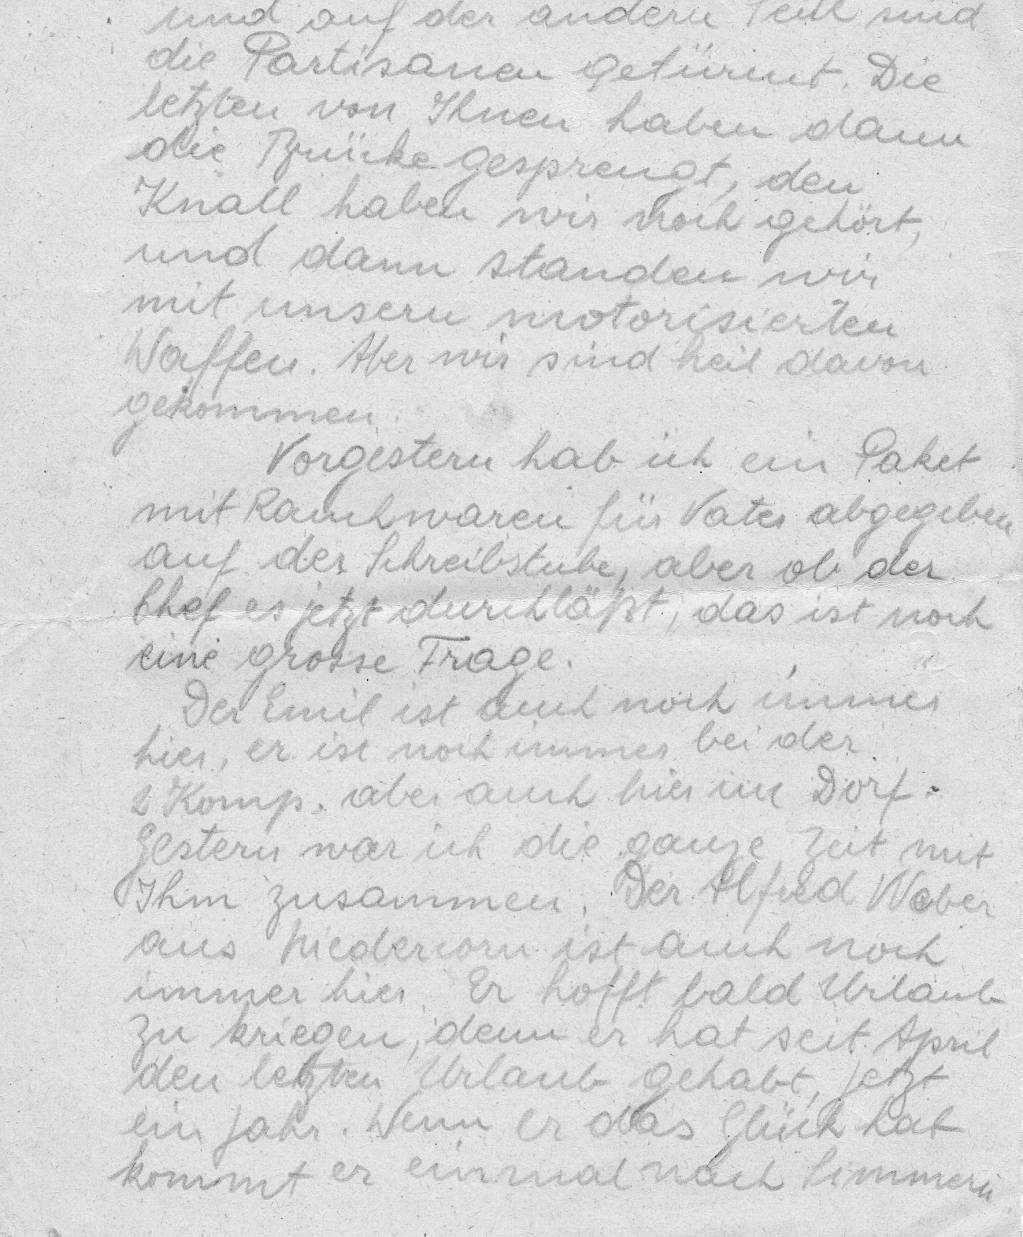 und auf der andern Seite sind
die Partisanen getürmt. Die
letzten von Ihnen haben dann
die Brücke gesprengt, den
Knall haben wir noch gehört,
und dann standen wir
mit unsern motorisierten
Waffen. Aber wir sind heil davon
gekommen.
Vorgestern hab ich ein Paket
mit Rauchwaren für Vater abgegeben
auf der Schreibstube, aber ob der
Chef es jetzt durchläßt, das ist noch
eine grosse Frage.
Der Emil ist auch noch immer
hier, er ist noch immer bei der
2 Komp. aber auch hier im Dorf.
Gestern war ich die ganze Zeit mit
Ihm zusammen. Der Alfred Weber
aus Niedercorn ist auch noch
immer hier. Er hofft bald Urlaub
zu kriegen, denn er hat seit April
den letzten Urlaub gehabt, jetzt
ein Jahr. Wenn Er das Glück hat
kommt er einmal nach Simmern